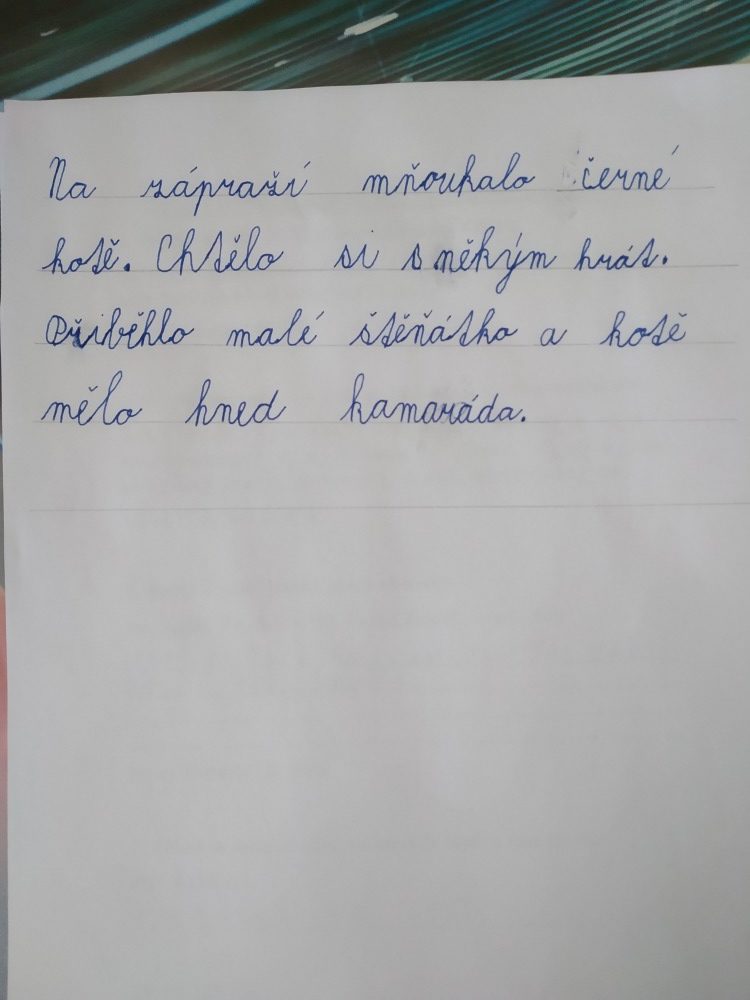 Na zápraží mňoukalo černé
kotě. Chtělo si s někým hrát.
Přiběhlo malé štěňátko a kotě
mělo hned kamaráda.